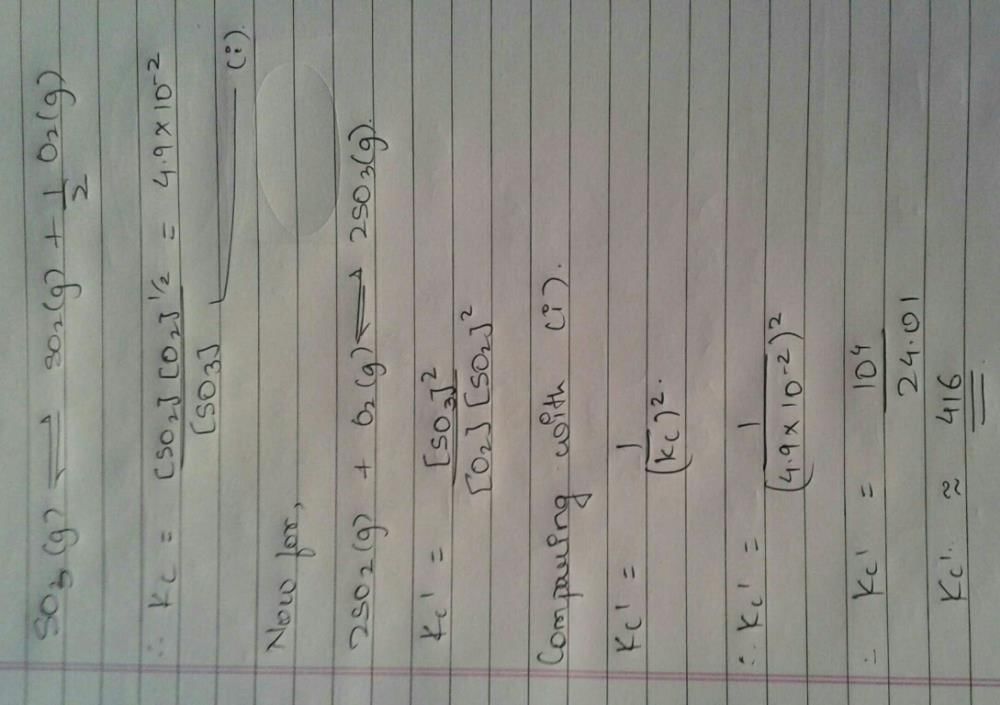 SO3(g) ⇌ SO2(g) + 1/2 O2(g)
∴ Kc = [SO2][O2]^1/2 / [SO3] = 4.9 × 10^-2 (i).
Now for,
2SO2(g) + O2(g) ⇌ 2SO3(g).
Kc' = [SO3]^2 / [O2][SO2]^2
Comparing with (i).
Kc' = 1 / (Kc)^2.
∴ Kc' = 1 / (4.9 × 10^-2)^2
∴ Kc' = 10^4 / 24.01
Kc' ≈ 416